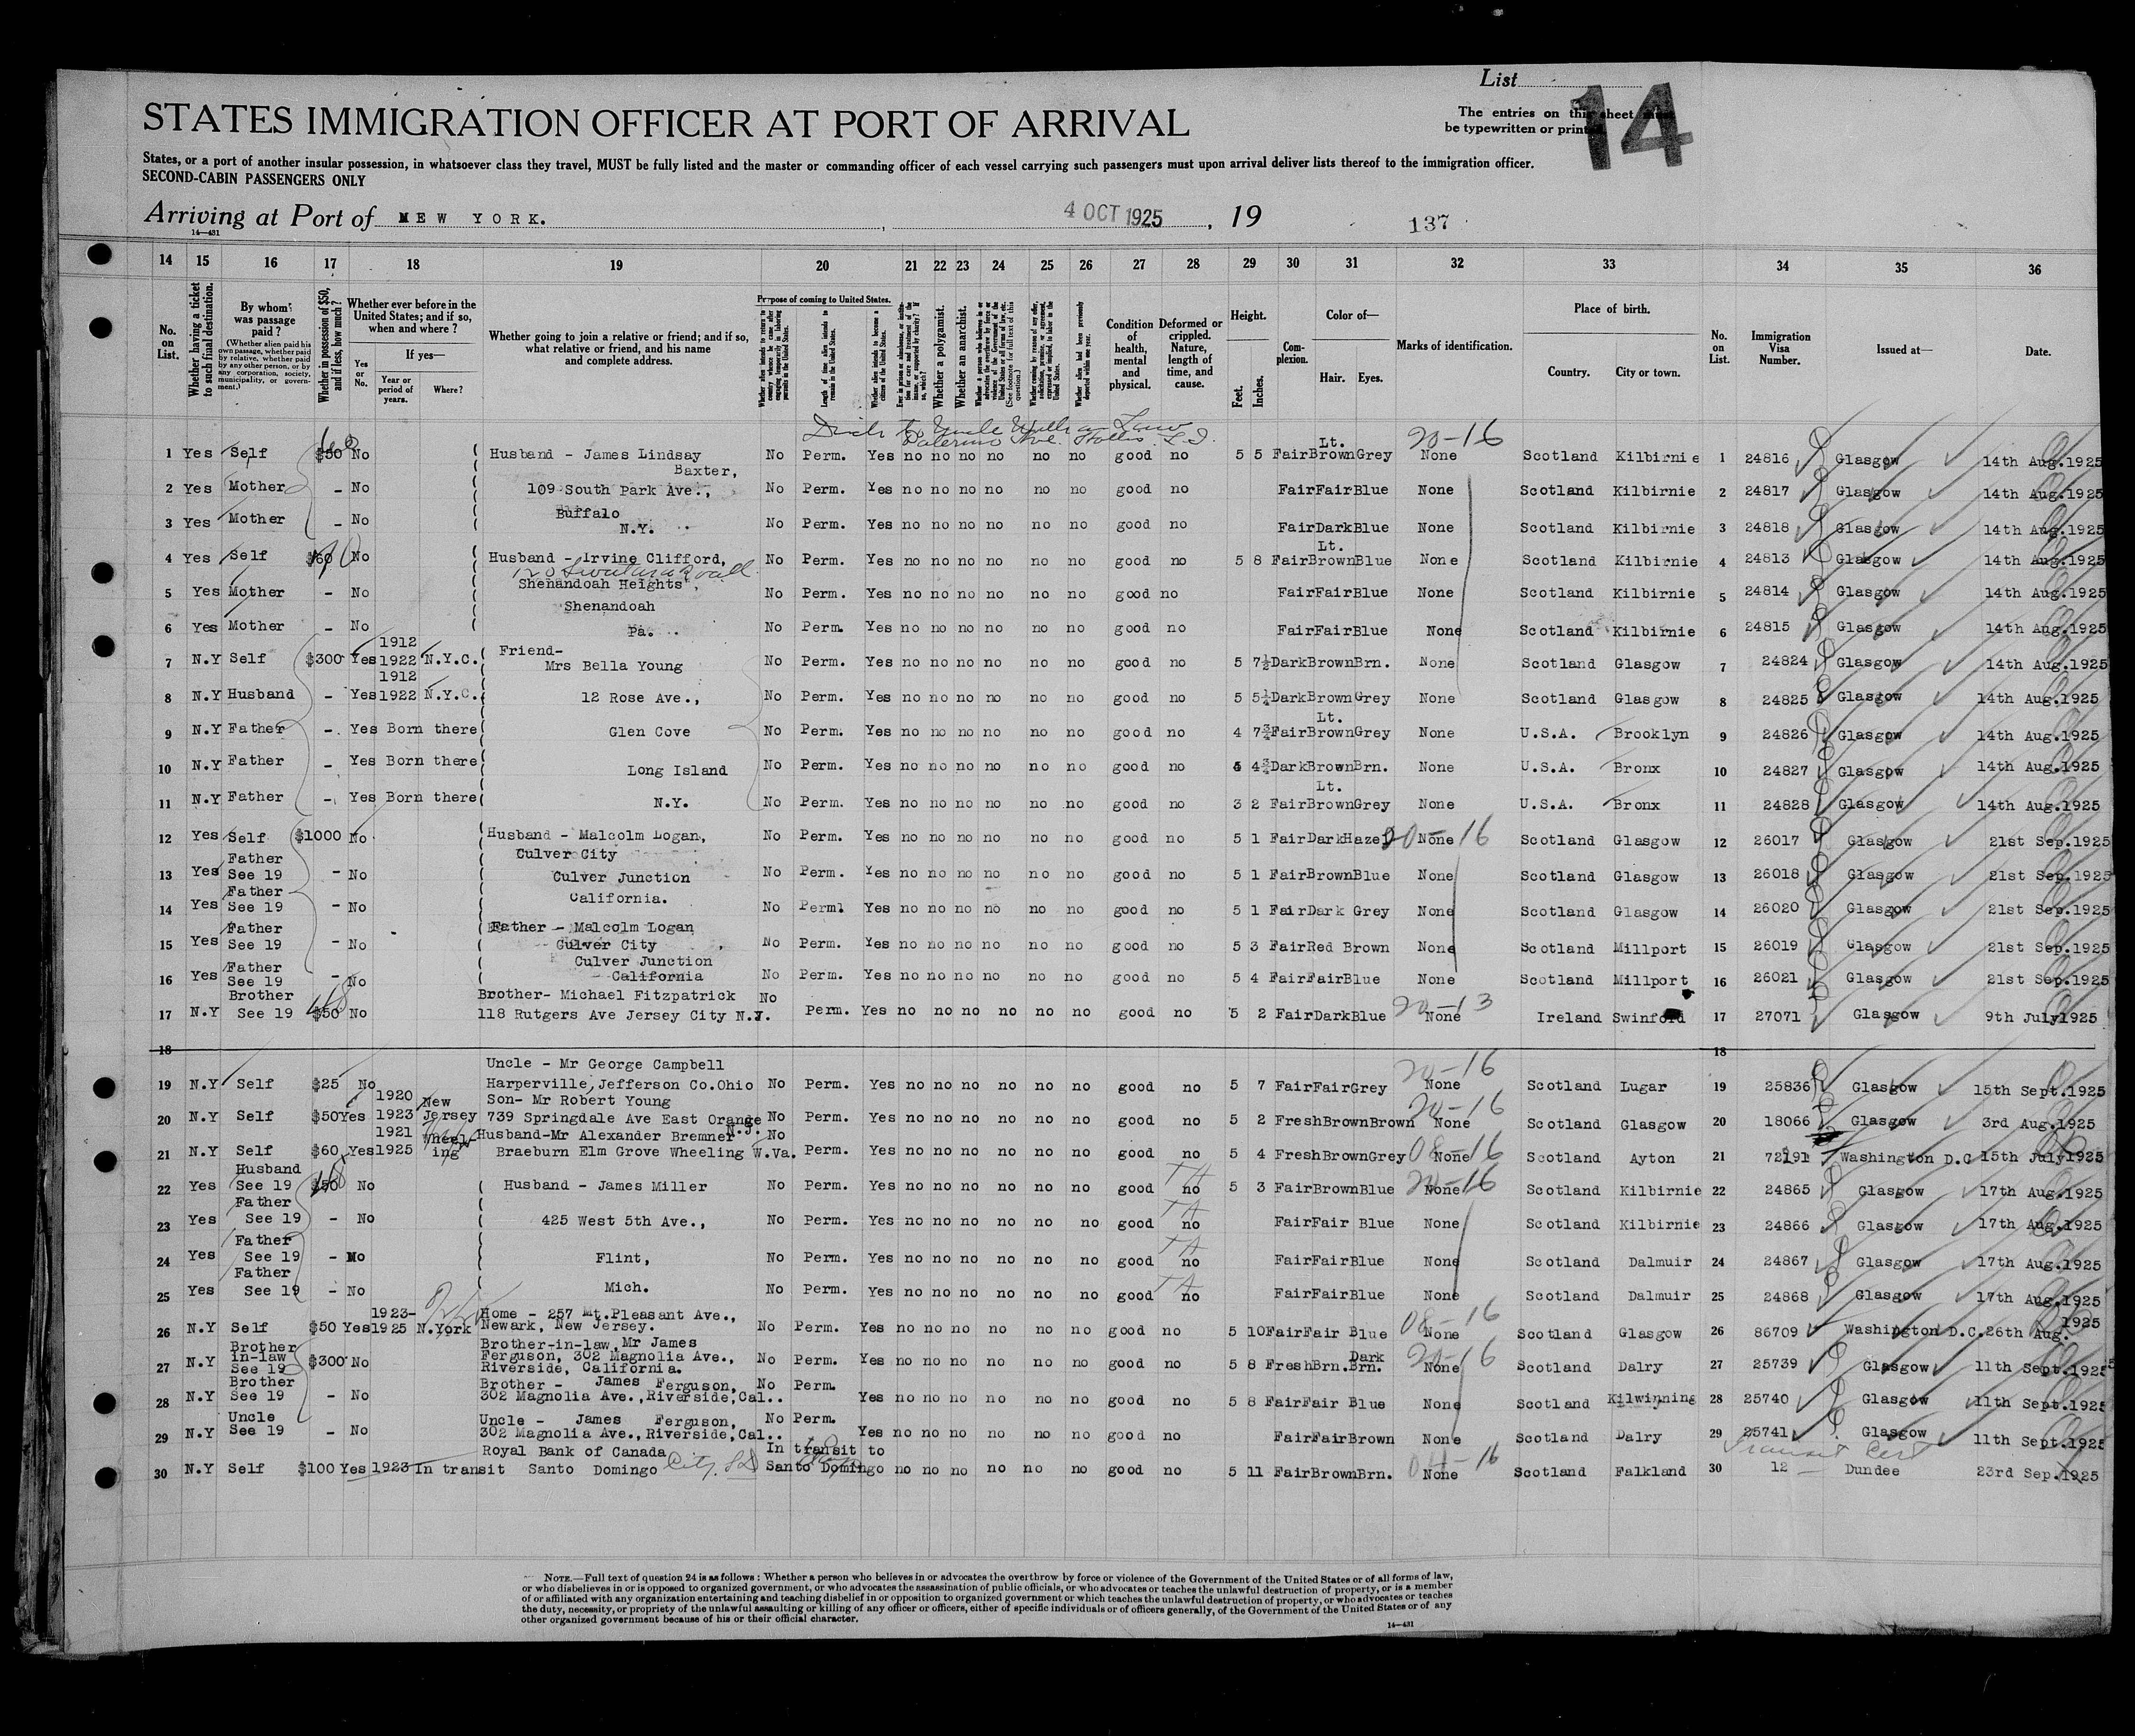 List
14
The entries on this sheet must
be typewritten or printed.
STATES IMMIGRATION OFFICER AT PORT OF ARRIVAL
States, or a port of another insular possession, in whatsoever class they travel, MUST be fully listed and the master or commanding officer of each vessel carrying such passengers must upon arrival deliver lists thereof to the immigration officer.
SECOND-CABIN PASSENGERS ONLY
Arriving at Port of NEW YORK. , 4 OCT 1925 , 19 137
14—431
14 15 16 17 18 19 20 21 22 23 24 25 26 27 28 29 30 31 32 33 34 35 36
No. on List.
Whether having a ticket to such final destination.
By whom was passage paid?
(Whether alien paid his own passage, whether paid by relative, whether paid by any other person, or by any corporation, society, municipality, or government.)
Whether in possession of $50, and if less, how much?
Whether ever before in the United States; and if so, when and where?
Yes or No.
If yes—
Year or period of years.
Where?
Whether going to join a relative or friend; and if so, what relative or friend, and his name and complete address.
Purpose of coming to United States.
Length of time alien intends to remain in the United States.
Whether alien intends to become a citizen of the United States.
Whether a polygamist.
Whether an anarchist.
Condition of health, mental and physical.
Deformed or crippled. Nature, length of time, and cause.
Height.
Feet.
Inches.
Complexion.
Color of—
Hair.
Eyes.
Marks of identification.
Place of birth.
Country.
City or town.
No. on List.
Immigration Visa Number.
Issued at—
Date.
20-16
1 Yes Self $50 No Husband - James Lindsay Baxter, No Perm. Yes no no no no no no good no 5 5 Fair Lt. Brown Grey None Scotland Kilbirnie 1 24816 Glasgow 14th Aug.1925
2 Yes Mother - No 109 South Park Ave., No Perm. Yes no no no no no no good no Fair Fair Blue None Scotland Kilbirnie 2 24817 Glasgow 14th Aug.1925
Buffalo
3 Yes Mother - No N.Y. No Perm. Yes no no no no no no good no Fair Dark Blue None Scotland Kilbirnie 3 24818 Glasgow 14th Aug.1925
4 Yes Self $60 No Husband - Irvine Clifford, No Perm. Yes no no no no no no good no 5 8 Fair Lt. Brown Blue None Scotland Kilbirnie 4 24813 Glasgow 14th Aug.1925
Shenandoah Heights,
5 Yes Mother - No Shenandoah No Perm. Yes no no no no no no good no Fair Fair Blue None Scotland Kilbirnie 5 24814 Glasgow 14th Aug.1925
6 Yes Mother - No Pa. No Perm. Yes no no no no no no good no Fair Fair Blue None Scotland Kilbirnie 6 24815 Glasgow 14th Aug.1925
7 N.Y Self $300 Yes 1912 1922 N.Y.C. Friend- Mrs Bella Young No Perm. Yes no no no no no no good no 5 7½ Dark Brown Brn. None Scotland Glasgow 7 24824 Glasgow 14th Aug.1925
8 N.Y Husband - Yes 1912 1922 N.Y.C. 12 Rose Ave., No Perm. Yes no no no no no no good no 5 5½ Dark Brown Grey None Scotland Glasgow 8 24825 Glasgow 14th Aug.1925
9 N.Y Father - Yes Born there Glen Cove No Perm. Yes no no no no no no good no 4 7¾ Fair Lt. Brown Grey None U.S.A. Brooklyn 9 24826 Glasgow 14th Aug.1925
10 N.Y Father - Yes Born there Long Island No Perm. Yes no no no no no no good no 4 4¾ Dark Brown Brn. None U.S.A. Bronx 10 24827 Glasgow 14th Aug.1925
11 N.Y Father - Yes Born there N.Y. No Perm. Yes no no no no no no good no 3 2 Fair Lt. Brown Grey None U.S.A. Bronx 11 24828 Glasgow 14th Aug.1925
12 Yes Self $1000 No Husband - Malcolm Logan, No Perm. Yes no no no no no no good no 5 1 Fair Dark Hazel None 20-16 Scotland Glasgow 12 26017 Glasgow 21st Sep.1925
Culver City
13 Yes Father See 19 - No Culver Junction No Perm. Yes no no no no no no good no 5 1 Fair Brown Blue None Scotland Glasgow 13 26018 Glasgow 21st Sep.1925
California.
14 Yes Father See 19 - No No Perml Yes no no no no no no good no 5 1 Fair Dark Grey None Scotland Glasgow 14 26020 Glasgow 21st Sep.1925
Father - Malcolm Logan
15 Yes Father See 19 - No Culver City No Perm. Yes no no no no no no good no 5 3 Fair Red Brown None Scotland Millport 15 26019 Glasgow 21st Sep.1925
Culver Junction
16 Yes Father See 19 - No California No Perm. Yes no no no no no no good no 5 4 Fair Fair Blue None Scotland Millport 16 26021 Glasgow 21st Sep.1925
Brother- Michael Fitzpatrick No
17 N.Y Brother See 19 $50 No 118 Rutgers Ave Jersey City N.J. Perm. Yes no no no no no no good no 5 2 Fair Dark Blue 20-13 None Ireland Swinford 17 27071 Glasgow 9th July1925
18 18
Uncle - Mr George Campbell
19 N.Y Self $25 No Harperville, Jefferson Co.Ohio No Perm. Yes no no no no no no good no 5 7 Fair Fair Grey 20-16 None Scotland Lugar 19 25836 Glasgow 15th Sept.1925
Son- Mr Robert Young
20 N.Y Self $50 Yes 1920 1923 New Jersey 739 Springdale Ave East Orange N.J. No Perm. Yes no no no no no no good no 5 2 Fresh Brown Brown 20-16 None Scotland Glasgow 20 18066 Glasgow 3rd Aug.1925
Husband-Mr Alexander Bremner No
21 N.Y Self $60 Yes 1921 1925 Wheeling Braeburn Elm Grove Wheeling W.Va. Perm. Yes no no no no no no good no 5 4 Fresh Brown Grey 08-16 None Scotland Ayton 21 72191 Washington D.C 15th July1925
22 Yes Husband See 19 $50 No Husband - James Miller No Perm. Yes no no no no no no good no 5 3 Fair Brown Blue 20-16 None Scotland Kilbirnie 22 24865 Glasgow 17th Aug.1925
23 Yes Father See 19 - No 425 West 5th Ave., No Perm. Yes no no no no no no good no Fair Fair Blue None Scotland Kilbirnie 23 24866 Glasgow 17th Aug.1925
24 Yes Father See 19 - No Flint, No Perm. Yes no no no no no no good no Fair Fair Blue None Scotland Dalmuir 24 24867 Glasgow 17th Aug.1925
25 Yes Father See 19 - No Mich. No Perm. Yes no no no no no no good no Fair Fair Blue None Scotland Dalmuir 25 24868 Glasgow 17th Aug.1925
Home - 257 Mt.Pleasant Ave.,
26 N.Y Self $50 Yes 1923-1925 N.York Newark, New Jersey. No Perm. Yes no no no no no no good no 5 10 Fair Fair Blue 08-16 None Scotland Glasgow 26 86709 Washington D.C. 26th Aug. 1925
Brother-in-law, Mr James
27 N.Y Brother in-law See 19 $300 No Ferguson, 302 Magnolia Ave., Riverside, California. No Perm. Yes no no no no no no good no 5 8 Fresh Brn. Dark Brn. 20-16 None Scotland Dalry 27 25739 Glasgow 11th Sept.1925
Brother - James Ferguson,
28 N.Y Brother See 19 - No 302 Magnolia Ave.,Riverside,Cal.. No Perm. Yes no no no no no no good no 5 8 Fair Fair Blue None Scotland Kilwinning 28 25740 Glasgow 11th Sept.1925
Uncle - James Ferguson,
29 N.Y Uncle See 19 - No 302 Magnolia Ave.,Riverside,Cal.. No Perm. Yes no no no no no no good no Fair Fair Brown None Scotland Dalry 29 25741 Glasgow 11th Sept.1925
Royal Bank of Canada In transit to Transit Cert
30 N.Y Self $100 Yes 1923 In transit Santo Domingo City. Santo Domingo no no no no no no good no 5 11 Fair Brown Brn. None Scotland Falkland 30 12 Dundee 23rd Sep.1925
NOTE.—Full text of question 24 is as follows: Whether a person who believes in or advocates the overthrow by force or violence of the Government of the United States or of all forms of law,
or who disbelieves in or is opposed to organized government, or who advocates the assassination of public officials, or who advocates or teaches the unlawful destruction of property, or is a member
of or affiliated with any organization entertaining and teaching disbelief in or opposition to organized government or which teaches the unlawful destruction of property, or who advocates or teaches
the duty, necessity, or propriety of the unlawful assaulting or killing of any officer or officers, either of specific individuals or of officers generally, of the Government of the United States or of any
other organized government because of his or their official character.
14—431